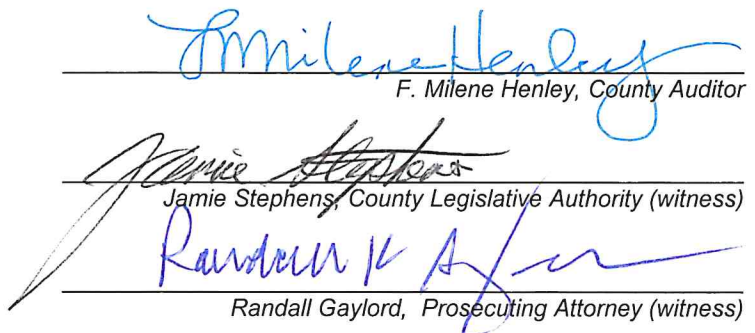 F Milene Henley
F. Milene Henley, County Auditor
Jamie Stephens
Jamie Stephens, County Legislative Authority (witness)
Randall K
Randall Gaylord, Prosecuting Attorney (witness)